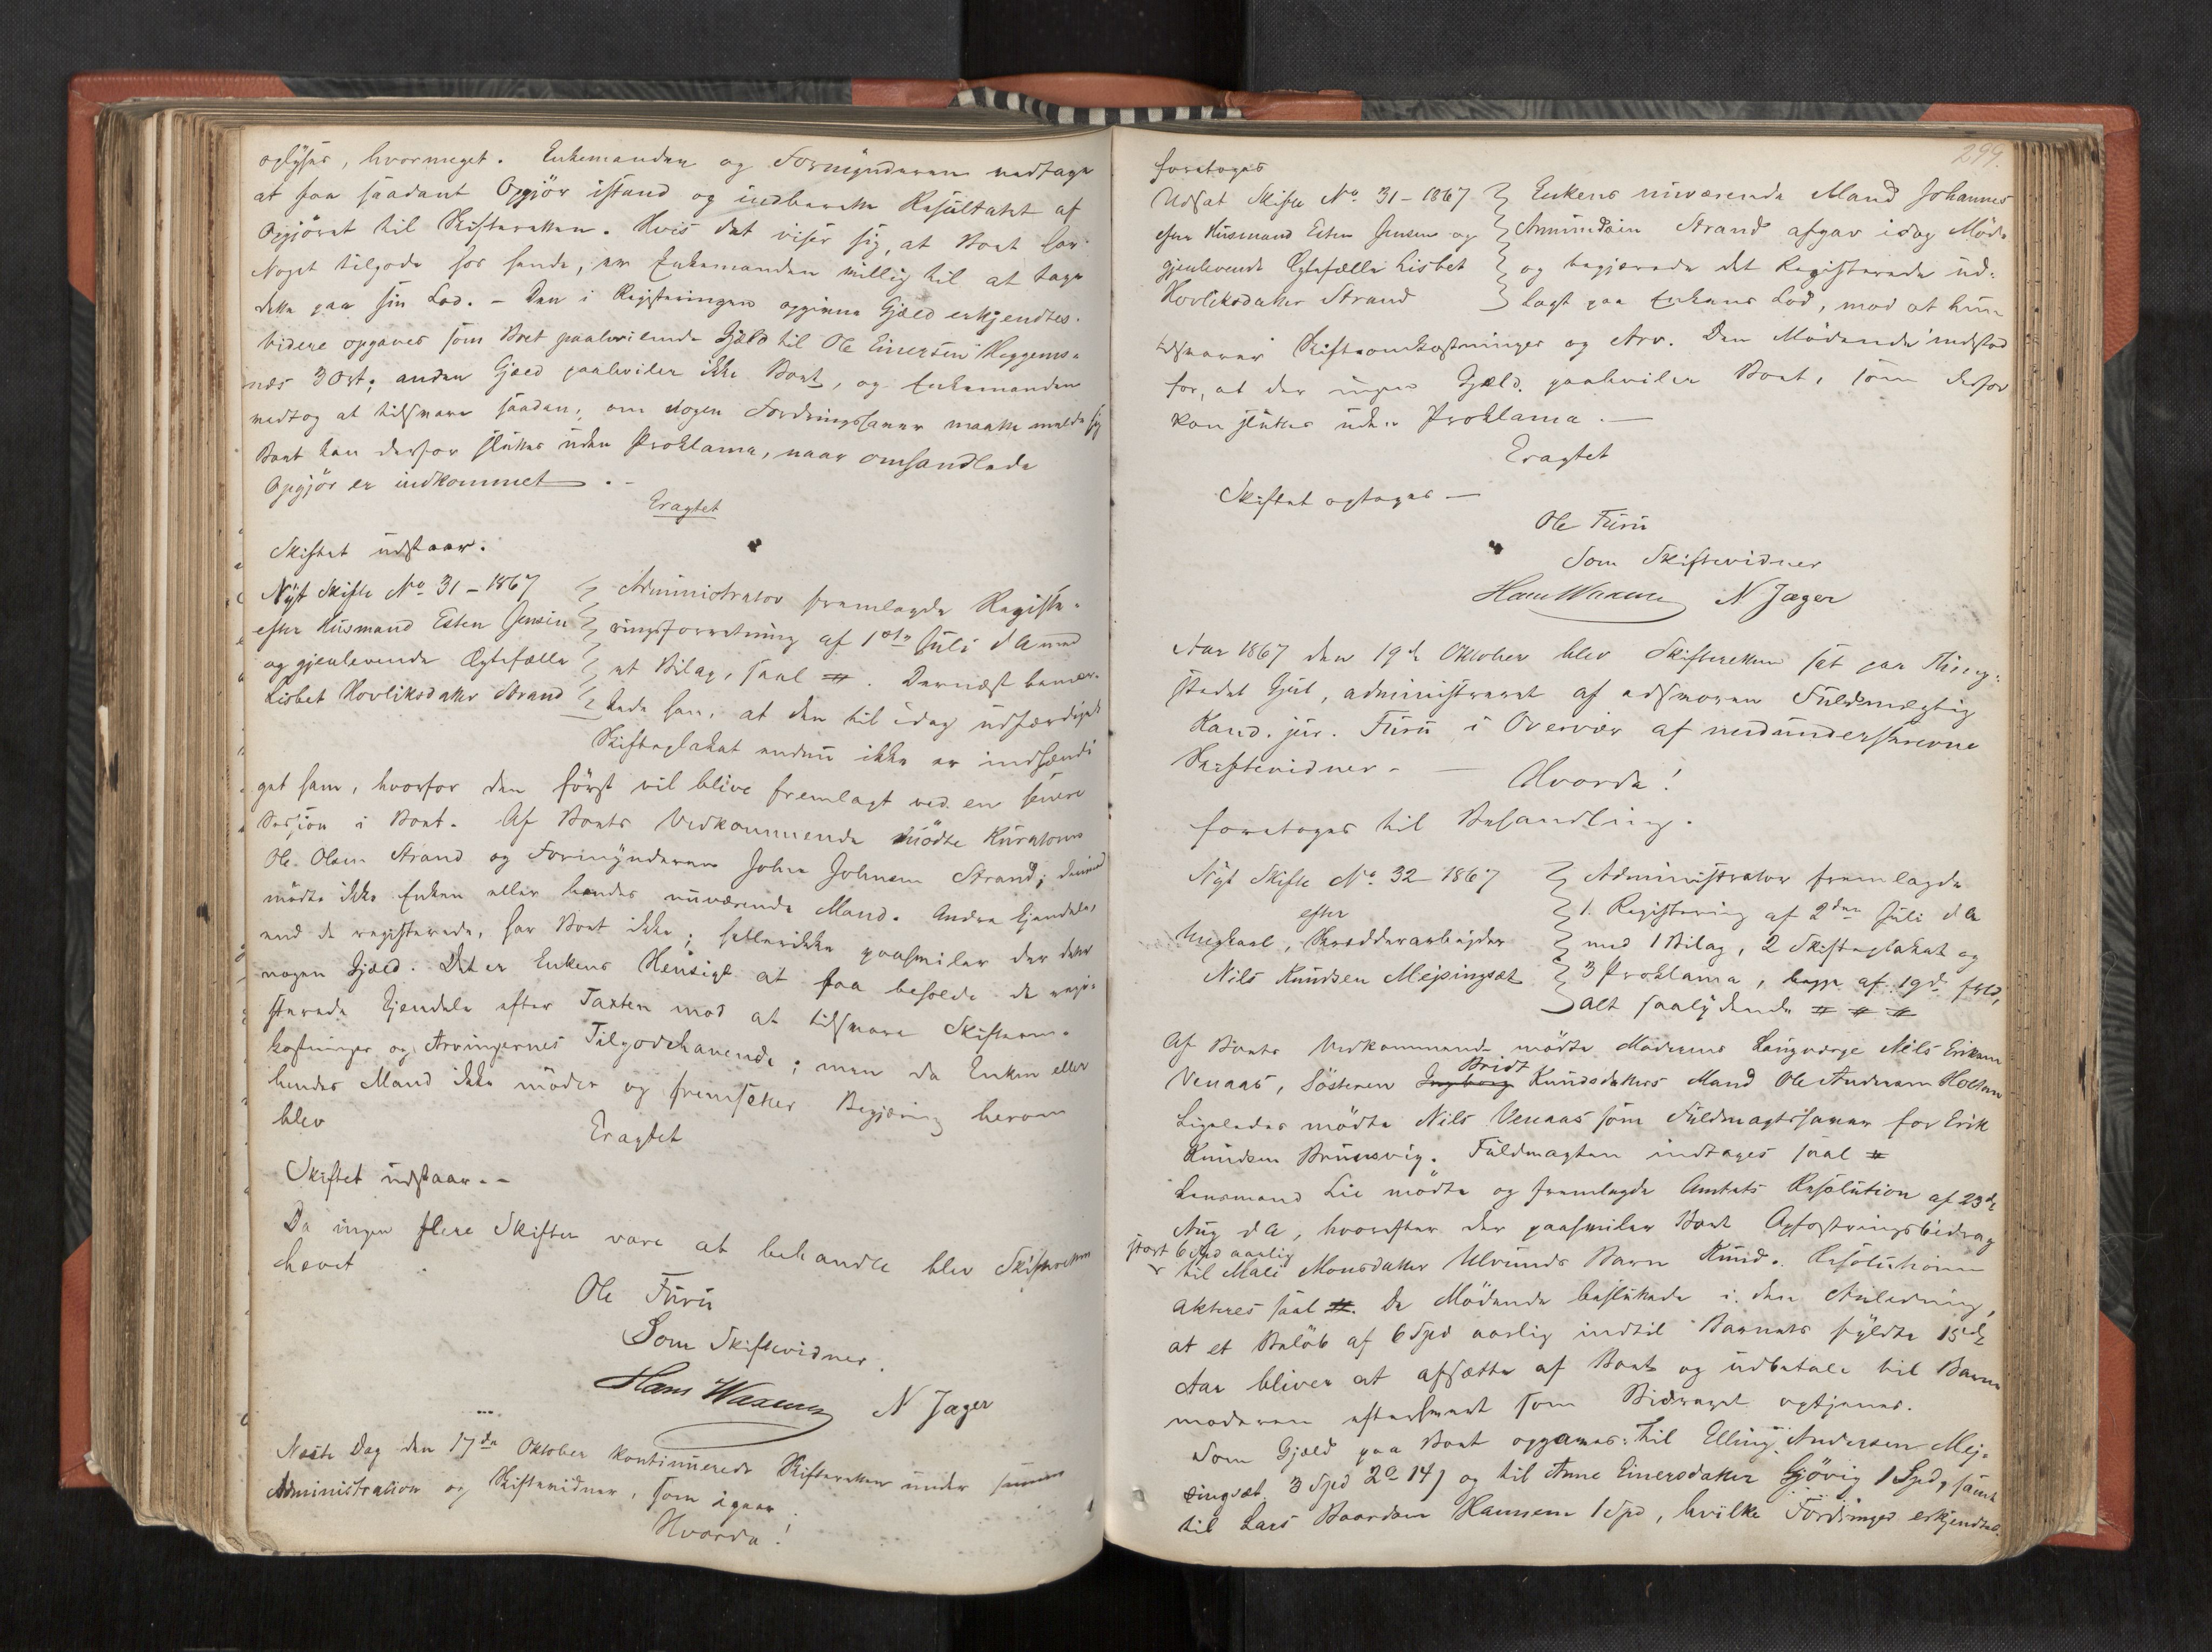 oplyses, hvormeget. Enkemanden og Formynderen vedtager
at faa saadant Opgjör istand og indberette Resultatet af
Opgjöret til Skifteretten. Hvis det viser sig, at Boet har
Noget tilgode hos hende, er Enkemanden villig til at tage
dette paa sin Lod. – Den i Registeringen opgivne Gjæld erkjendtes.
Videre opgaves som Boet paahvilende Gjæld til Ole Einersen Heggems-
næs 3 Ort; anden Gjæld paahviler ikke Boet, og Enkemanden
vedtog at tilsvare saadan, om Nogen Fordringshaver maatte melde sig
Boet kan derfor sluttes uden Proklama, naar omhandlede
Opgjör er indkommet. –
Eragtet
Skiftet udstaar.
Nyt Skifte No 31 – 1867
efter Husmand Esten Jensen
og gjenlevende Ægtefælle
Lisbet Hovliksdatter Strand
Administrator fremlagde Registe-
ringsforretning af 1ste Juli d A med
et Bilag, saal #. Dernæst bemær-
kede han, at den til idag udfærdigede
Skifteplakat endnu ikke er indsendt
get ham, hvorfor den först vil blive fremlagt ved en senere
Session i Boet. Af Boets Vedkommende mödte Kurator
Ole Olsen Strand og Formynderen John Johnsen Strand; derimod
mödte ikke Enken eller hendes nuværende Mand. Andre Ejendele,
end de registerede, har Boet ikke; hellerikke paahviler der dette
nogen Gjæld. Det er Enkens Hensigt at faa beholde de regi-
sterede Ejendele efter Taxten mod at tilsvare Skifteom-
kostninger og Arvingernes Tilgodehavende; men da Enken eller
hendes Mand ikke möder og fremsætter Begjæring herom
blev
Eragtet
Skiftet udstaar. –
Da ingen flere Skifter vare at behandle blev Skifteretten
hævet
Ole Furu
Som Skiftevidner.
Hans Waxeng N Jæger
Næste Dag den 17de Oktober kontinuerede Skifteretten under samme
Administration og Skiftevidner, som igaar.
Hvorda!
299.
foretoges
Udsat Skifte No 31 – 1867
efter Husmand Esten Jensen og
gjenlevende Ægtefælle Lisbet
Hovliksdatter Strand
Enkens nuværende Mand Johannes
Amundsen Strand afgav idag Möde
og begjærede det Registerede ud-
lagt paa Enkens Lod, mod at hun
tilsvarer Skifteomkostninger og Arv. Den Mödende indestod
for, at der ingen Gjæld paahviler Boet, som derfor
kan sluttes uden Proklama. –
Eragtet
Skiftet optages –
Ole Furu
Som Skiftevidner
Hans Waxeng N Jæger
Aar 1867 den 19de Oktober blev Skifteretten sat paa Thing-
stedet Gjul, administreret af edsvoren Fuldmægtig
Kand. jur. Furu i Overvær af medunderskrevne
Skiftevidner. –
Hvorda!
foretoges til Behandling.
Nyt Skifte No 32 – 1867
efter
Ungkarl, Skrædderarbejder
Nils Knudsen Mejsingsæt
Administrator fremlagde
1. Registering af 2den Juli d A
med 1 Bilag, 2 Skifteplakat og
3 Proklama, begge af 19de
alt saalydende # # #
Af Boets Vedkommende mödte Moderens Laugværge Nils Eriksen
Venaas, Sösteren Ingeborg Bridt Knudsdatters Mand Ole Andersen Holten
Ligeledes mödte Nils Venaas som Fuldmagtshaver for Erik
Knudsen Brunsvig. Fuldmagten indtages saal #
Lensmand Lie mödte og fremlagde Amtets Resolution af 23de
Aug d A, hvorefter der paahviler Boet Opfostringsbidrag
stort 6 Spd aarlig
til Mali Monsdatter Ulvunds Barn Knud. Resolutionen
akteres saal #. De Mödende besluttede i den Anledning,
at et Belöb af 6 Spd aarlig indtil Barnets fyldte 15de
Aar bliver at afsætte af Boet og udbetale til Barne
moderen efterhvert som Bidraget optjenes.
Som Gjæld paa Boet opgaves: til Elling Andersen Mej-
singsæt 3 Spd 2 O 14 s og til Anne Einersdatter Gjövig 1 Spd, samt
til Lars Baardsen Hansem 1 Spd, hvilke Fordringer erkjendtes.